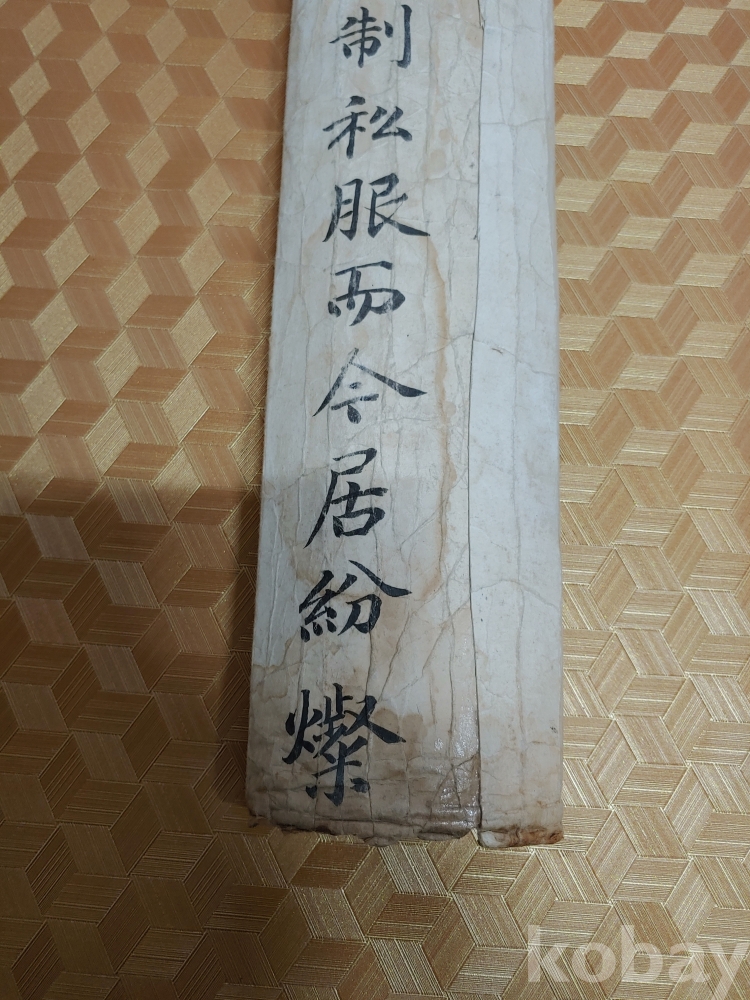 制私服而今居紛燦
kobay